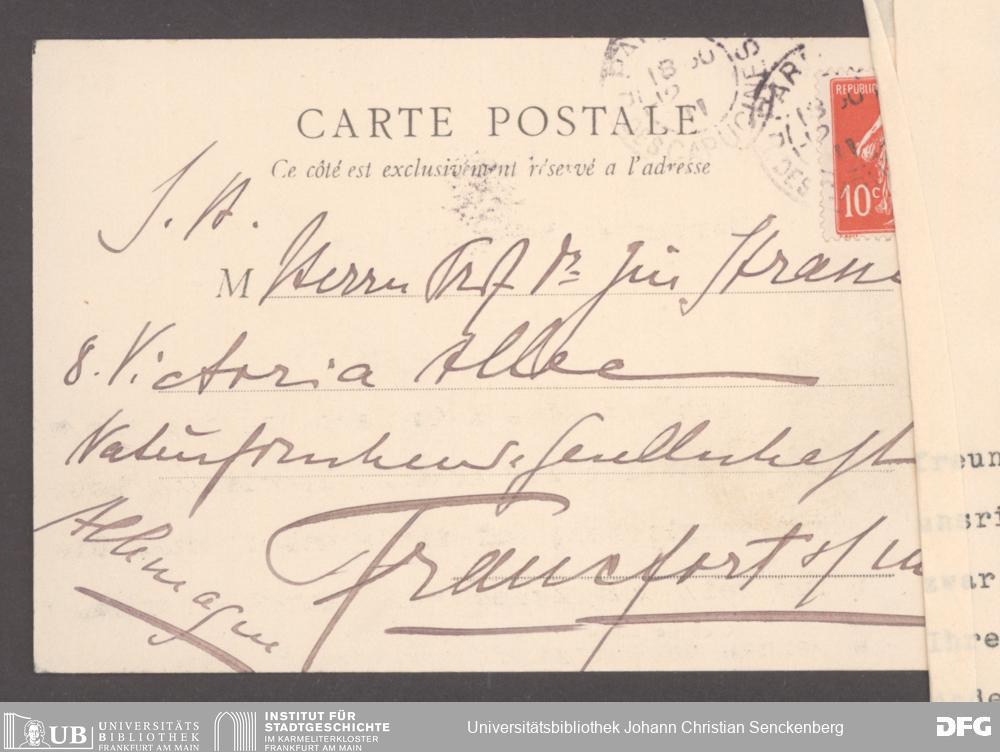 CARTE POSTALE
Ce côté est exclusivement réservé a l'adresse
S. H.
M Herrn Prof Dr Jur Strass
8. Victoria Allee
Naturforschend. Gesellschaft
Francfort s/m
Allemagne
PARIS
18 30
12
DES CAPUCINES
PAR
18 30
12 11
DES
REPUBLIQ
10c
freun
unsri
zwar
Ihre
UB UNIVERSITÄTS
BIBLIOTHEK
FRANKFURT AM MAIN
INSTITUT FÜR
STADTGESCHICHTE
IM KARMELITERKLOSTER
FRANKFURT AM MAIN
Universitätsbibliothek Johann Christian Senckenberg
DFG